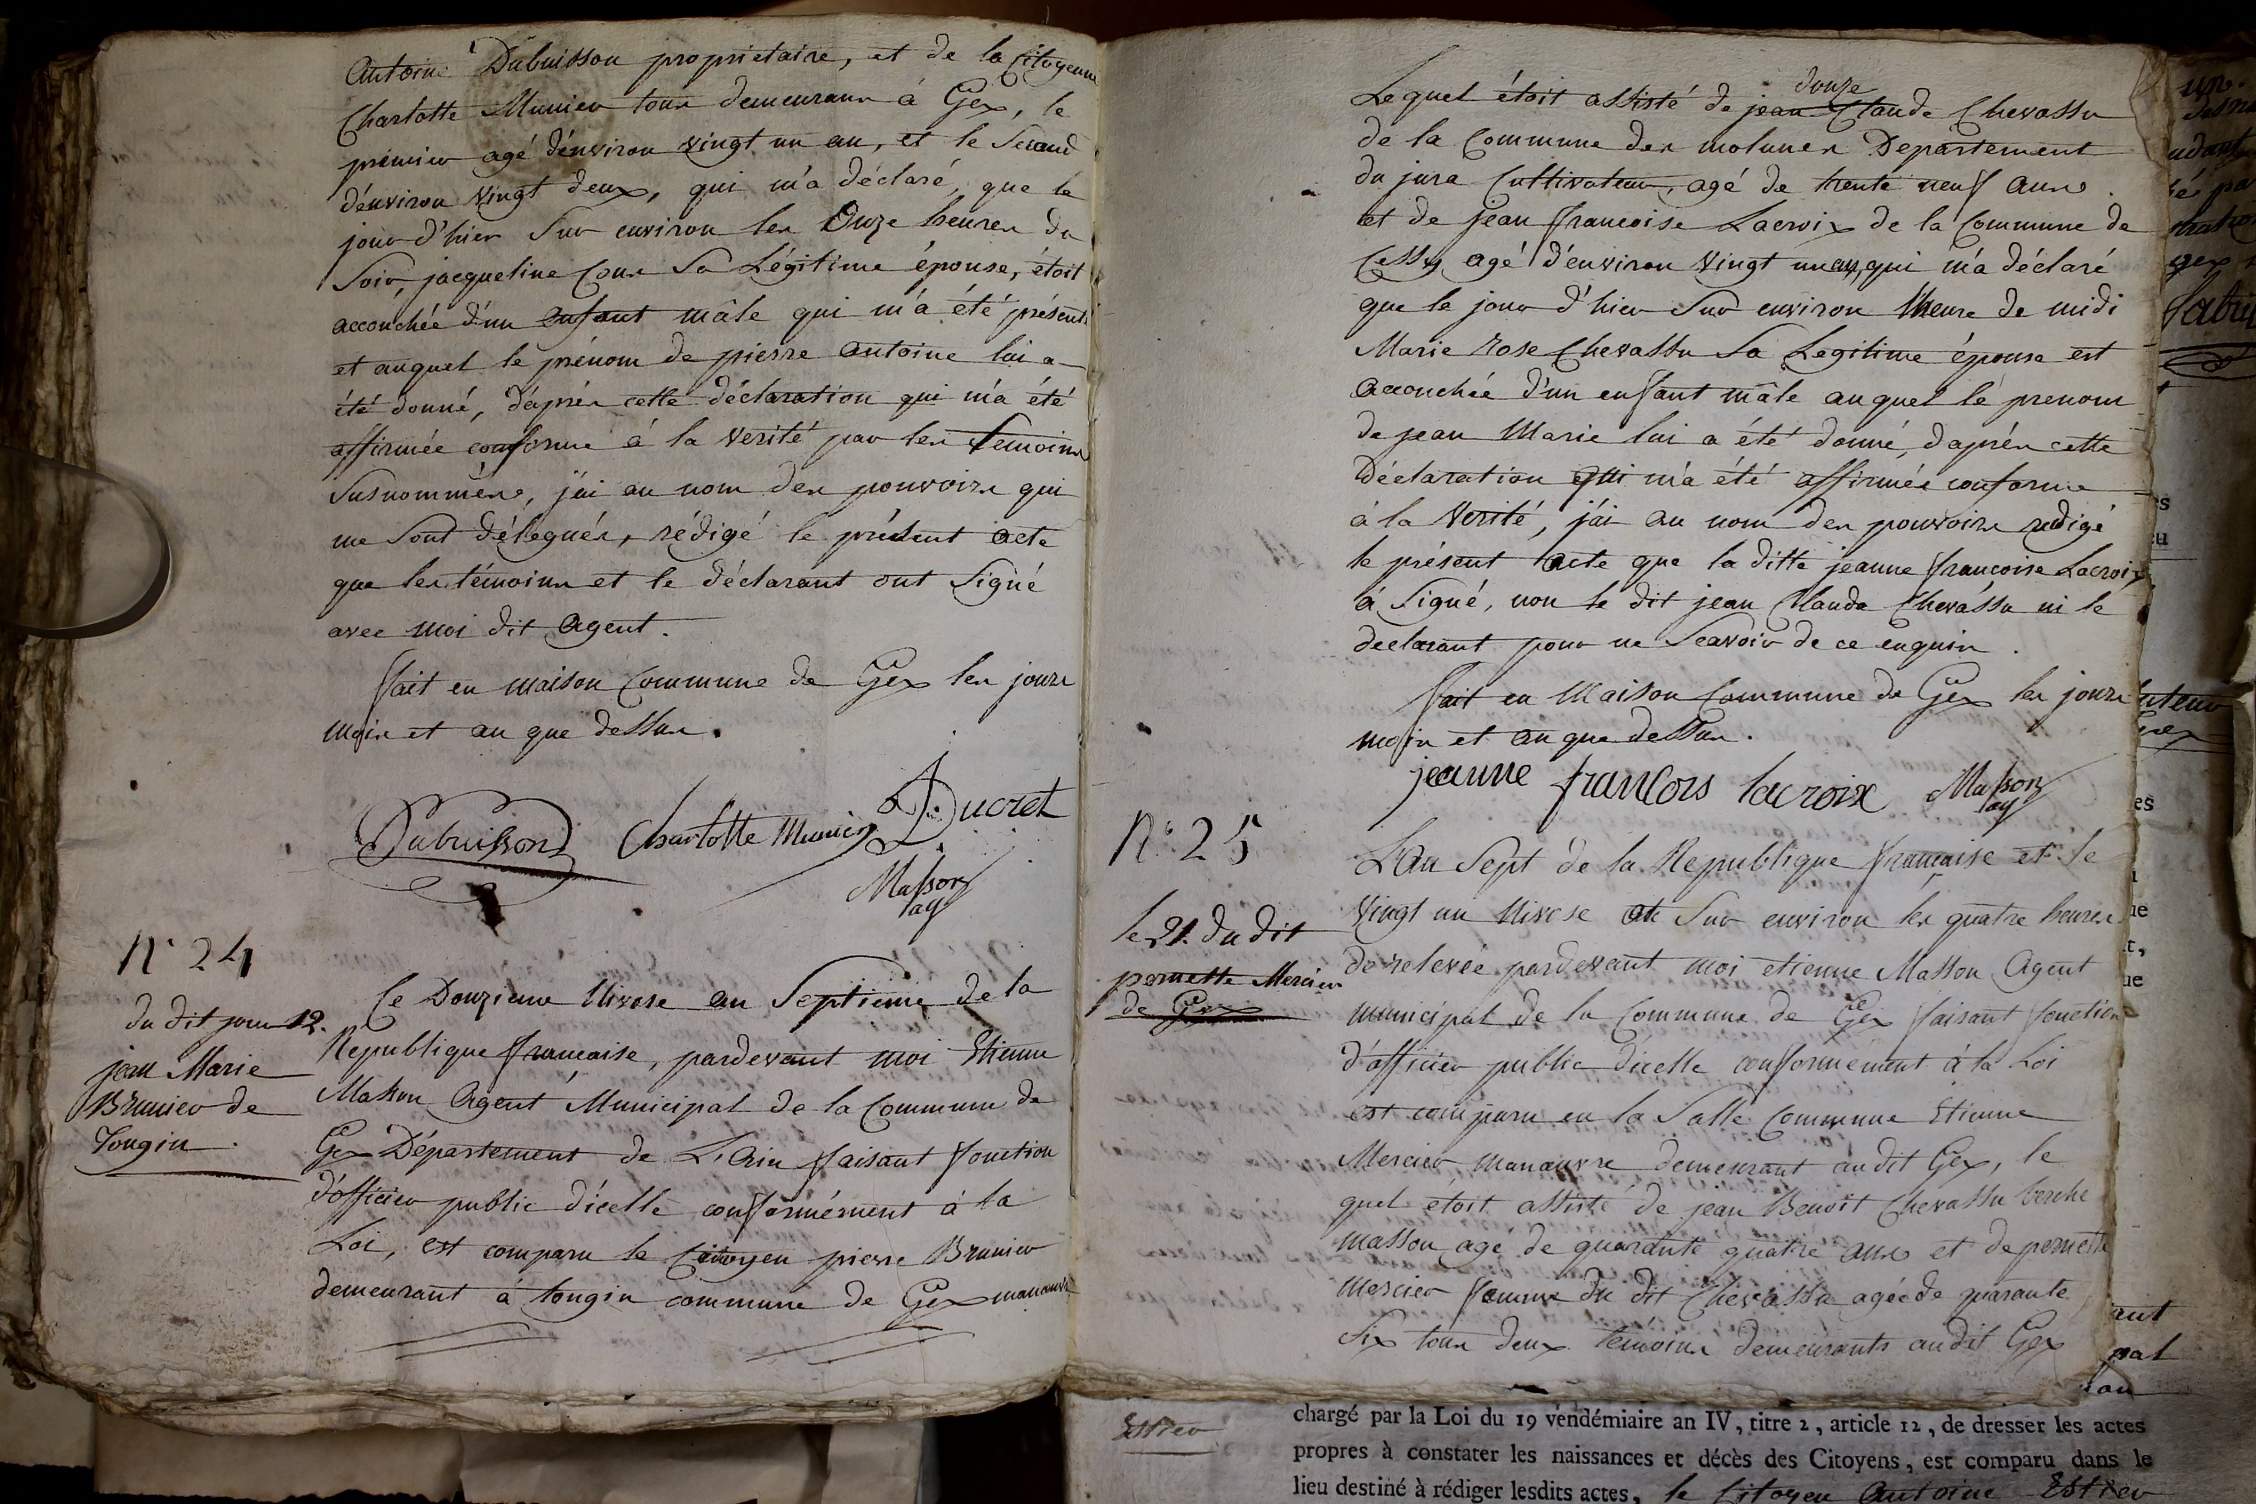 Antoine Dubuisson propriétaire, et de la Citoyenne
Charlotte Munier tous demeurans à Gex, le
prémier agé d'énviron vingt un an, et le second
d'énviron vingt deux, qui m'a déclaré, que le
jour d'hier sur environ les Onze heures du
soir, jacqueline Cour sa Légitime épouse, étoit
accouchée d'un enfant mâle qui m'a été présenté
et auquel le prénom de pierre antoine lui a
été donné, d'aprés cette déclaration qui m'a été
affirmée conforme à la verité par les temoins
susnommés, j'ai au nom des pouvoirs qui
me sont délegués, rédigé le présent acte
que les témoins et le déclarant ont signé
avec moi dit agent.
fait en maison Commune de Gex les jours
mois et an que dessus.
Dubuisson Charlotte Munier Ducret
Masson
ag
N° 24
du dit jour 12.
jean Marie
Brunier de
Tougin.
Ce Douzieme Nivose an Septieme de la
Republique francaise, pardevant moi Etienne
Masson Agent Municipal de la Commune de
Gex Département de L'Ain faisant fonction
d'officier public d'icelle conformément à la
Loi, est comparu le Citoyen pierre Brunier
demeurant à tougin commune de Gex manouvre
Lequel étoit assisté de jean Claude Chevassu
de la Commune des molunes Departement
du jura Cultivateur, agé de trente neuf ans.
et de jean francoise Lacroix de la Commune de
Cessy agé d'énviron vingt un an, qui m'a déclaré
que le jour d'hier sur environ l'heure de midi
Marie rose Chevassu sa Legitime épouse est
accouchée d'un enfant mâle auquel le prenom
de jean Marie lui a été donné, d'aprés cette
Déclaration qui m'a été affirmée conforme
à la verité, j'ai au nom des pouvoirs redigé
le présent acte que la ditte jeanne francoise Lacroix
à signé, non le dit jean Claude Chevassu ni le
declarant pour ne scavoir de ce enquis.
fait en Maison Commune de Gex les jours
mois et an que dessus.
jeanne francois lacroix Masson
ag
N° 25
le 21. du dit
pernette Mercier
de Gex
L'an Sept de la Republique francaise et le
vingt un Nivose sur environ les quatre heures
de relevée pardevant moi etienne Masson Agent
municipal de la Commune de Gex faisant fonction
d'officier public d'icelle conformément à la Loi
est comparu en la Salle Commune Etienne
Mercier manouvre demeurant audit Gex, le
quel étoit assisté de jean Benoit Chevassu berche
masson agé de quarante quatre ans et de pernette
mercier femme du dit Chevassu agée de quarante
six tous deux témoins demeurants audit Gex
chargé par la Loi du 19 vendémiaire an IV, titre 2, article 12, de dresser les actes
propres à constater les naissances et décès des Citoyens, est comparu dans le
lieu destiné à rédiger lesdits actes, le Citoyen Antoine